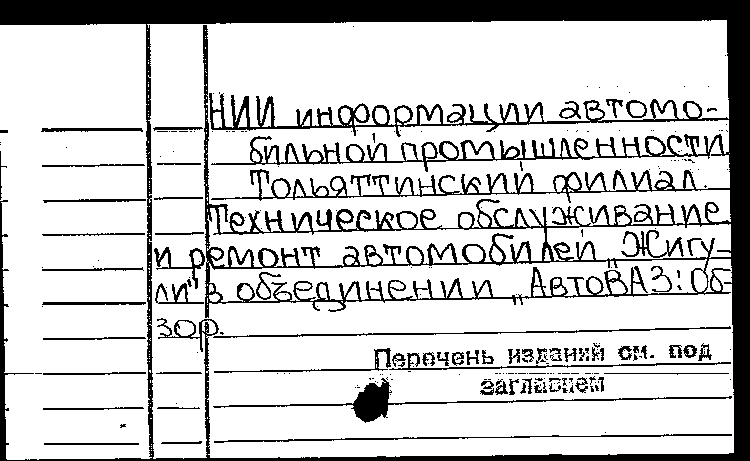 НИИ информации автомо-
бильной промышленности
Тольяттинский филиал.
Техническое обслуживание
и ремонт автомобилей „Жигу-
ли" в объединении „АвтоВАЗ: Об-
зор.
Перечень изданий см. под
заглавием